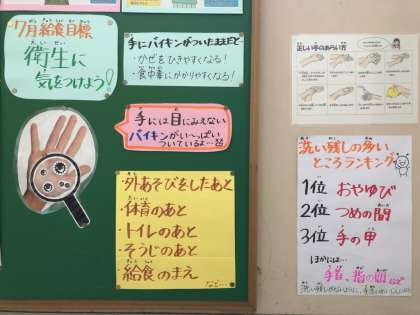 7月給食目標
衛生に
気をつけよう!
手にバイキンがついたままだと
・かぜをひきやすくなる!
・食中毒にかかりやすくなる!
手には目にみえない
バイキンがい〜っぱい
ついているよ…
・外あそびをしたあと
・体育のあと
・トイレのあと
・そうじのあと
・給食のまえ
など…
正しい手のあらい方
洗い残しの多い
ところランキング
1位 おやゆび
2位 つめの間
3位 手の甲
ほかには…
手首、指の間など
洗い残しがないように、